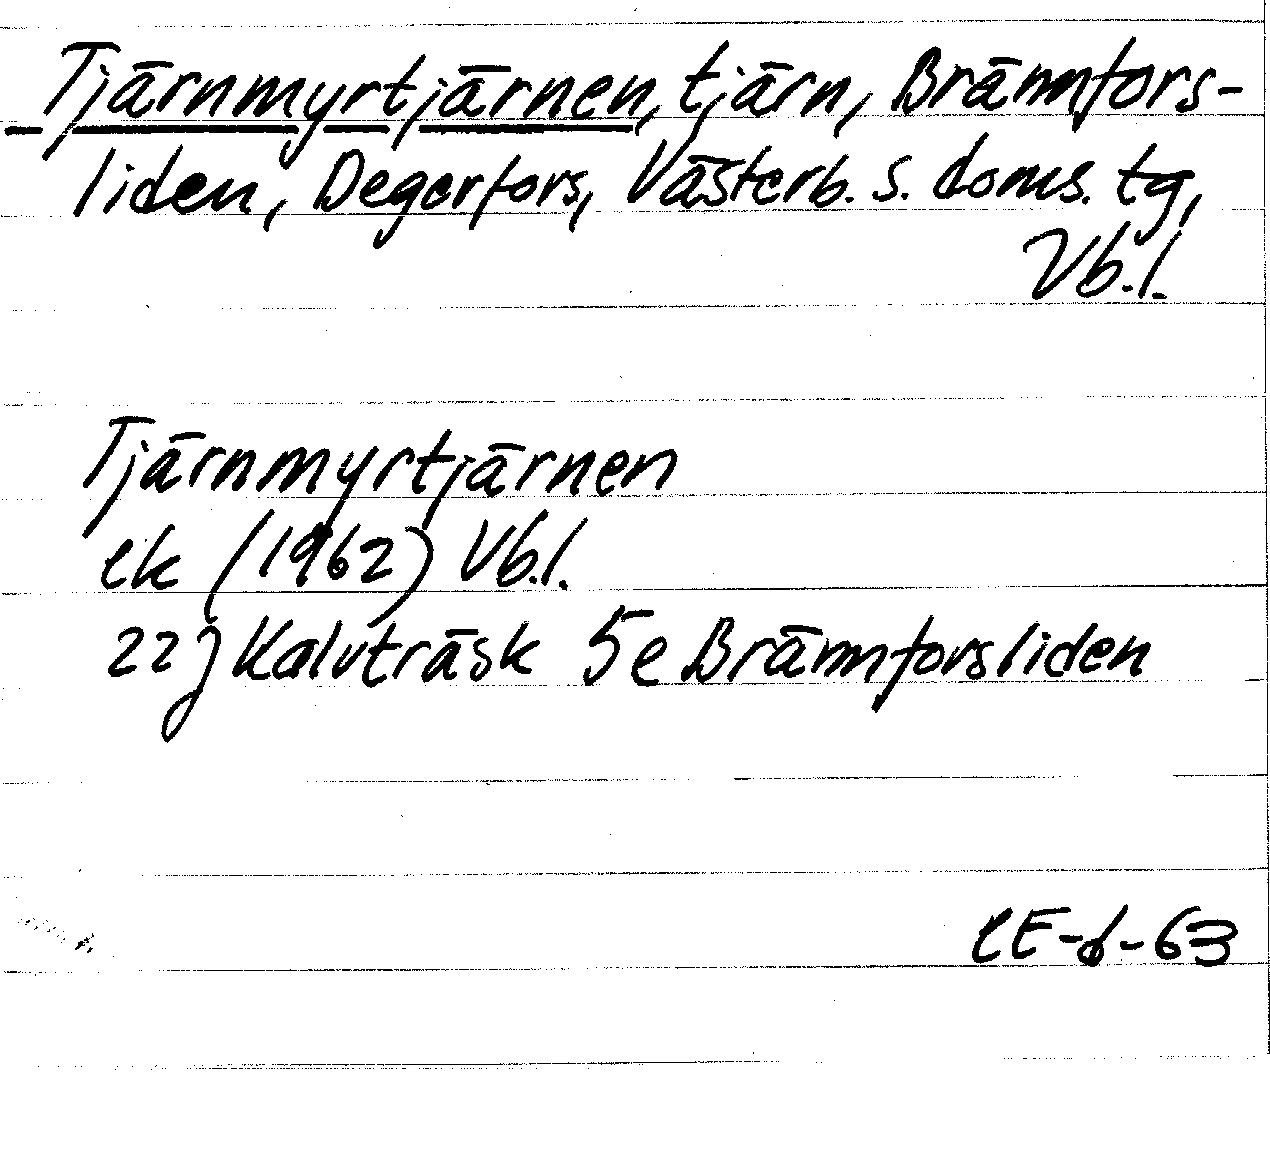 Tjärnmyrtjärnen, tjärn, Brännfors-
liden, Degerfors, Västerb. s. doms. tg,
Vb. l.
Tjärnmyrtjärnen
ek (1962) Vb. l.
22 J Kalvträsk 5e Brännforsliden
CE-6-63